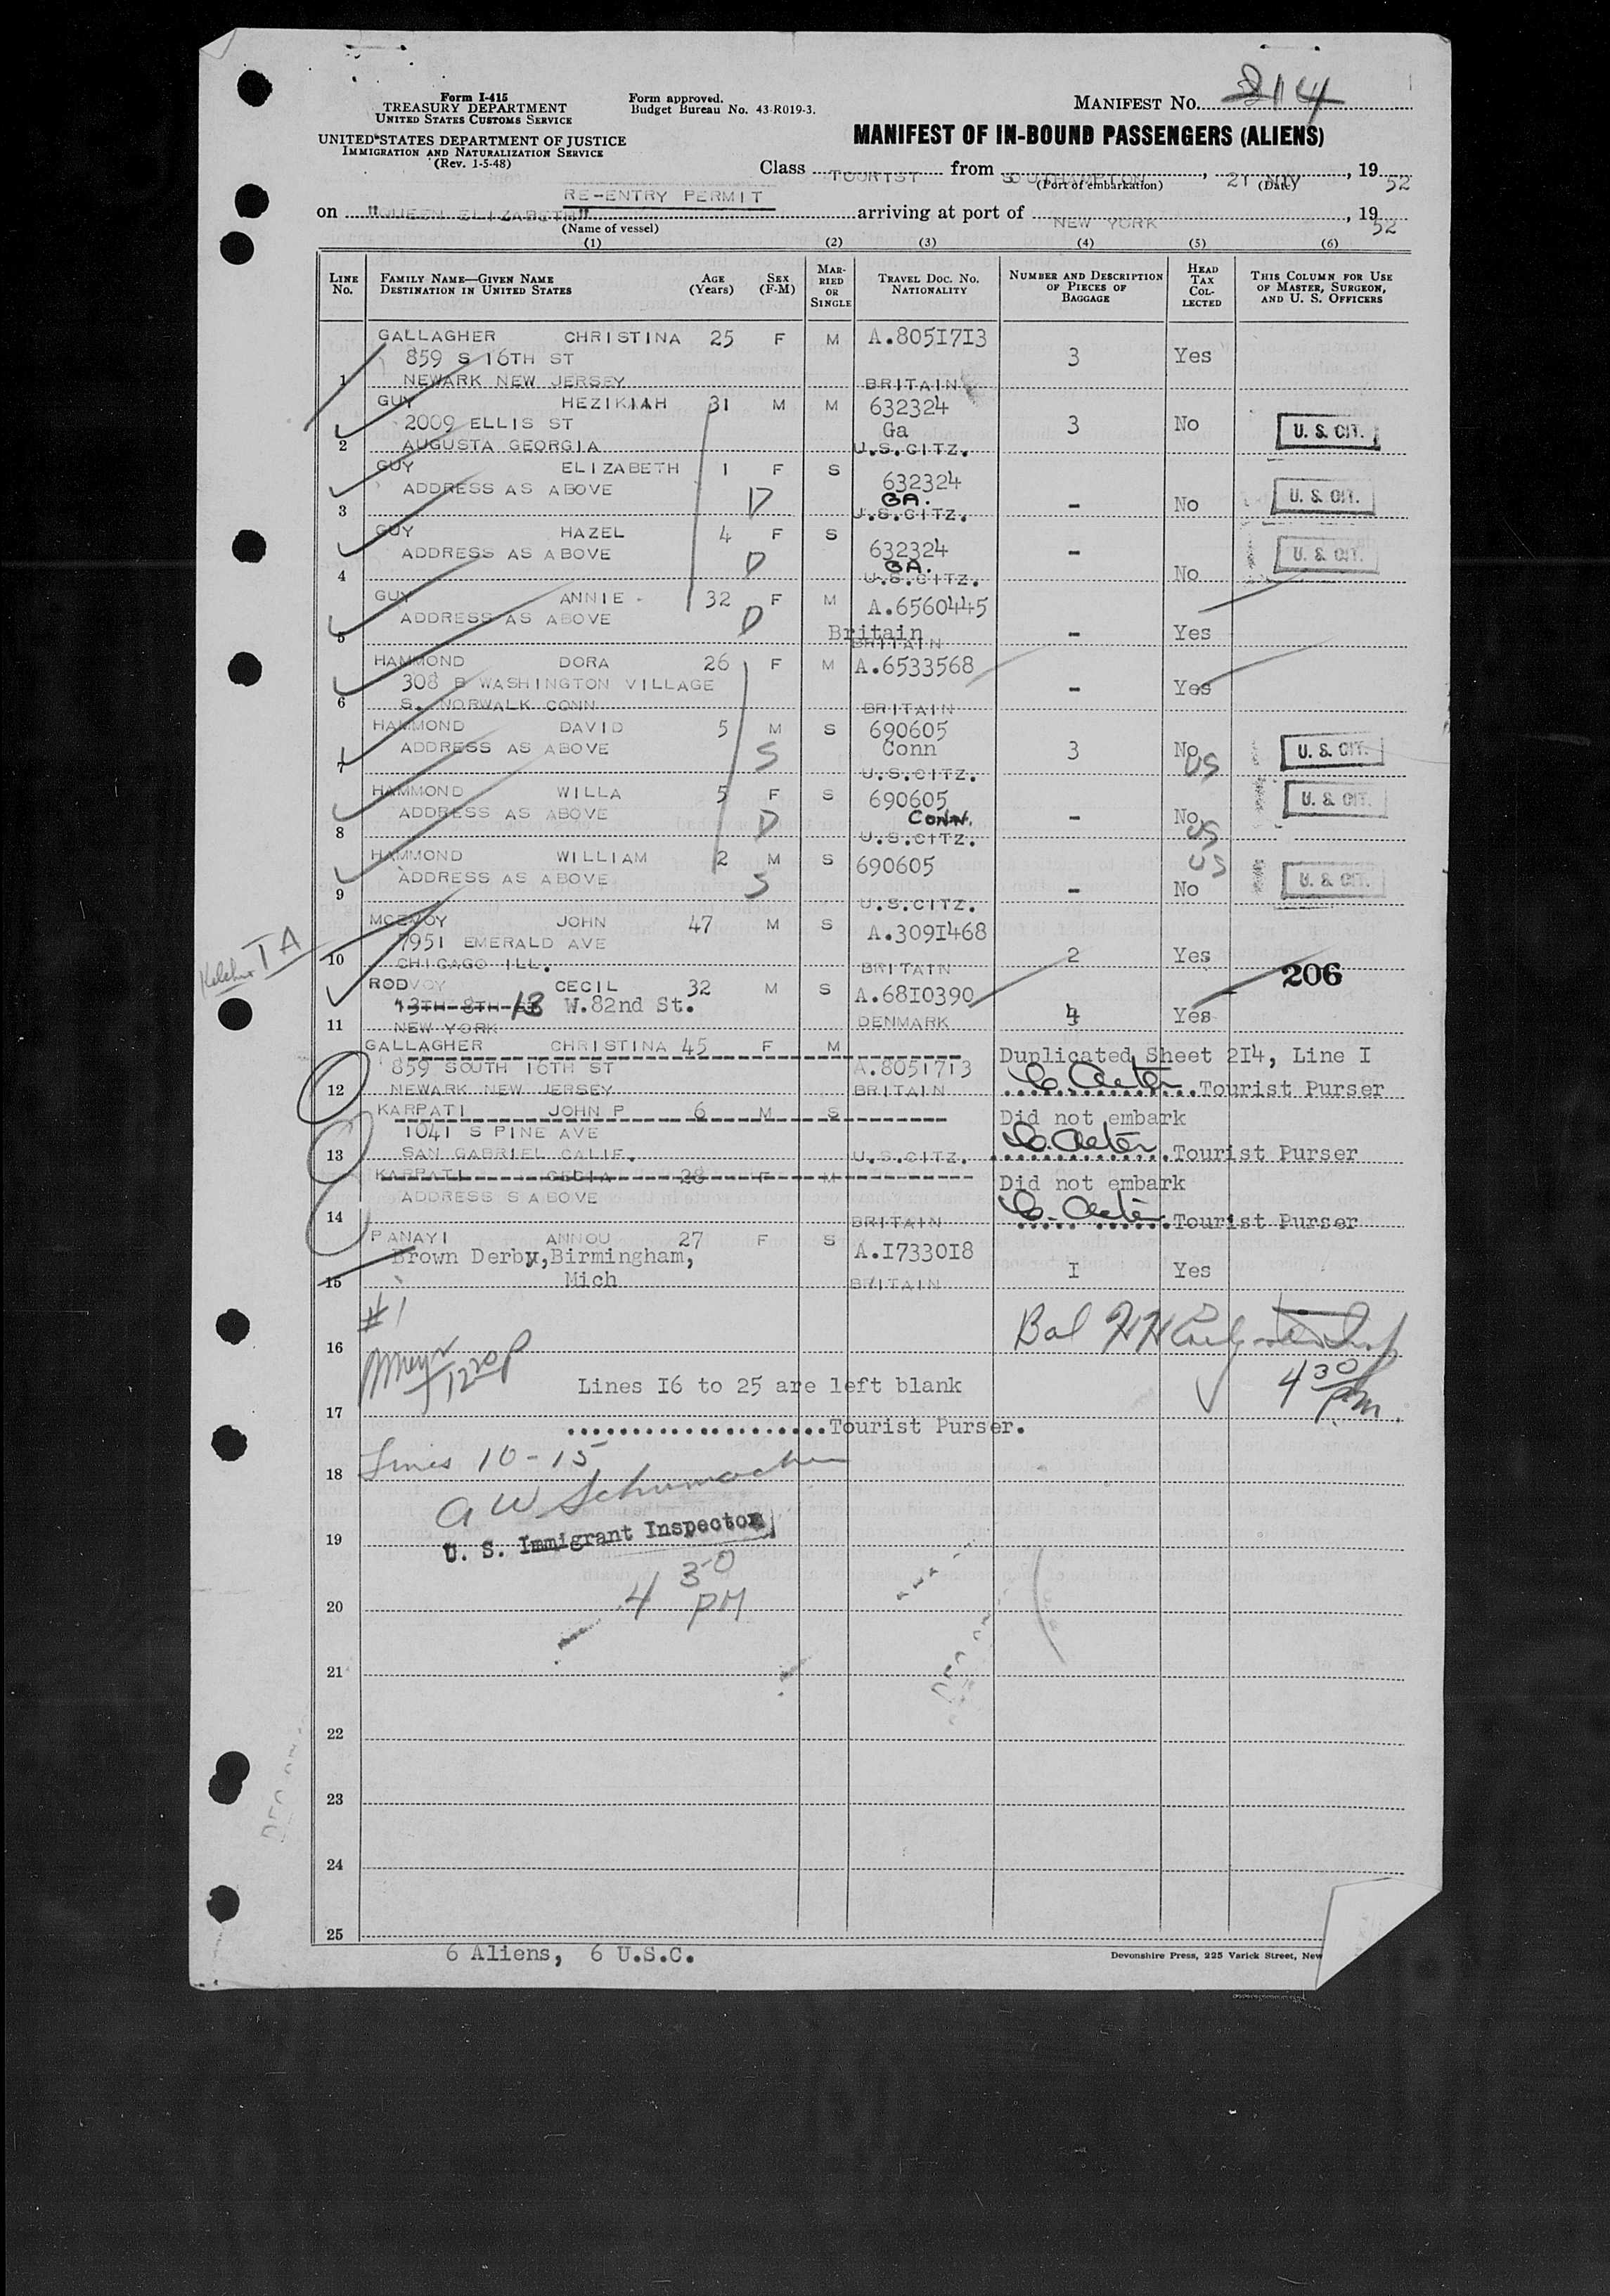 Form I-415
TREASURY DEPARTMENT
UNITED STATES CUSTOMS SERVICE
UNITED STATES DEPARTMENT OF JUSTICE
IMMIGRATION AND NATURALIZATION SERVICE
(Rev. 1-5-48)
Form approved.
Budget Bureau No. 43-R019-3.
MANIFEST No. 214
MANIFEST OF IN-BOUND PASSENGERS (ALIENS)
Class TOURIST from SOUTHAMPTON, 21 NOV, 1952
(Port of embarkation) (Date)
RE-ENTRY PERMIT
on "QUEEN ELIZABETH" arriving at port of NEW YORK, 1952
(Name of vessel)
(1) (2) (3) (4) (5) (6)
LINE No. FAMILY NAME—GIVEN NAME DESTINATION IN UNITED STATES AGE (Years) SEX (F-M) MARRIED OR SINGLE TRAVEL DOC. NO. NATIONALITY NUMBER AND DESCRIPTION OF PIECES OF BAGGAGE HEAD TAX COLLECTED THIS COLUMN FOR USE OF MASTER, SURGEON, AND U. S. OFFICERS
GALLAGHER CHRISTINA 25 F M A.8051713
859 S 16TH ST 3 Yes
1 NEWARK NEW JERSEY BRITAIN
GUY HEZIKIAH 31 M M 632324
2009 ELLIS ST Ga 3 No U. S. CIT.
2 AUGUSTA GEORGIA U.S.CITZ.
GUY ELIZABETH 1 F S 632324
ADDRESS AS ABOVE D GA. - No U. S. CIT.
3 U.S.CITZ.
GUY HAZEL 4 F S 632324
ADDRESS AS ABOVE D GA. - No U. S. CIT.
4 U.S.CITZ.
GUY ANNIE 32 F M A.6560445
ADDRESS AS ABOVE D
5 Britain BRITAIN - Yes
HAMMOND DORA 26 F M A.6533568
308 B WASHINGTON VILLAGE - Yes
6 S. NORWALK CONN BRITAIN
HAMMOND DAVID 5 M S 690605
ADDRESS AS ABOVE S Conn 3 No US U. S. CIT.
7 U.S.CITZ.
HAMMOND WILLA 5 F S 690605
ADDRESS AS ABOVE D CONN. - No US U. S. CIT.
8 U.S.CITZ.
HAMMOND WILLIAM 2 M S 690605 US
ADDRESS AS ABOVE S - No U. S. CIT.
9 U.S.CITZ.
MCEVOY JOHN 47 M S A.3091468
TA
7951 EMERALD AVE 2 Yes
10 CHICAGO ILL. BRITAIN 206
RODVOY CECIL 32 M S A.6810390
13TH 8TH ST 13 W.82nd St. 4 Yes
11 NEW YORK DENMARK
GALLAGHER CHRISTINA 45 F M Duplicated Sheet 214, Line I
859 SOUTH 16TH ST A.8051713
12 NEWARK NEW JERSEY BRITAIN Tourist Purser
KARPATI JOHN P 6 M S Did not embark
1041 S PINE AVE
13 SAN GABRIEL CALIF. U.S.CITZ. Tourist Purser
KARPATI CECIA 28 F M Did not embark
ADDRESS S ABOVE
14 BRITAIN Tourist Purser
PANAYI ANNOU 27 F S A.1733018
Brown Derby, Birmingham, I Yes
15 Mich BRITAIN
#1
16 Bal
1220P
Lines I6 to 25 are left blank 4 30 P.m.
17
Tourist Purser.
Lines 10-15
18
A W Schumacher
U. S. Immigrant Inspector
19
4 30 PM
20
21
22
23
24
25
6 Aliens, 6 U.S.C.
Devonshire Press, 225 Varick Street, New